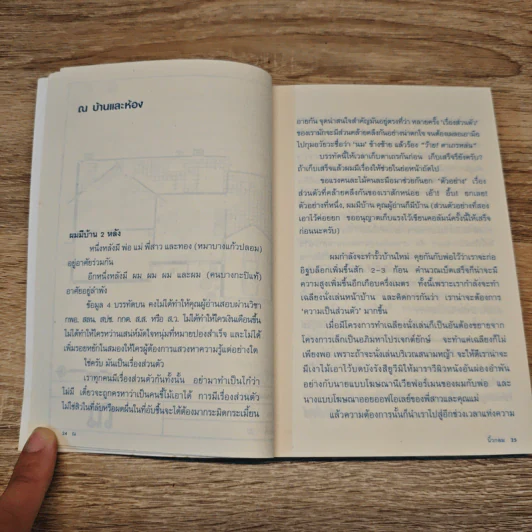 ณ บ้านและห้อง
ผมมีบ้าน 2 หลัง
หนึ่งหลังมี พ่อ แม่ พี่สาว และทอง (หมาบางแก้วปลอม)
อยู่อาศัยร่วมกัน
อีกหนึ่งหลังมี ผม ผม ผม และผม (คนบางกะปิแท้)
อาศัยอยู่ลำพัง
ข้อมูล 4 บรรทัดบน คงไม่ได้ทำให้คุณผู้อ่านสอบผ่านวิชา
กพอ. สลน. สปช. กกต. ส.ส. หรือ ส.ว. ไม่ได้ทำให้ใครมีเงินเดือนขึ้น
ไม่ได้ทำให้ใครหว่านเสน่ห์มัดใจหนุ่มที่หมายปองสำเร็จ และไม่ได้
เพิ่มรอยหยักในสมองให้ใครผู้ต้องการแสวงหาความรู้แต่อย่างใด
ใช่ครับ มันเป็นเรื่องส่วนตัว
เราทุกคนมีเรื่องส่วนตัวกันทั้งนั้น อย่ามาทำเป็นโก๋ว่า
ไม่มี เดี๋ยวจะถูกครหาว่าเป็นคนขี้ไม่เอาได้ การมีเรื่องส่วนตัว
อายกัน จุดน่าสนใจสำคัญมันอยู่ตรงที่ว่า หลายครั้ง 'เรื่องส่วนตัว'
ของเรามักจะมีส่วนคล้ายคลึงกันอย่างน่าตกใจ จนต้องเผลอเอามือ
ไปกุมอวัยวะชื่อว่า 'นม' ข้างซ้าย แล้วร้อง "ว้าย! ตาเถรหล่น"
บรรทัดนี้ให้เวลาเก็บตาเถรก่อน เก็บเสร็จรึยังครับ?
ถ้าเก็บเสร็จแล้วผมมีเรื่องให้ช่วยในย่อหน้าถัดไป
ขอแรงคนละไม้คนละมือมาช่วยกันยก 'ตัวอย่าง' เรื่อง
ส่วนตัวที่คล้ายคลึงกันของเราสักหน่อย เอ้า! ฮึ้บ! ยกเลย!
ตัวอย่างที่หนึ่ง, ผมมีบ้าน คุณผู้อ่านก็มีบ้าน (ส่วนตัวอย่างที่สอง
เอาไว้ค่อยยก ขออนุญาตเก็บแรงไว้เขียนคอลัมน์ครั้งนี้ให้เสร็จ
ก่อนนะครับ)
ผมกำลังจะทำรั้วบ้านใหม่ คุยกันกับพ่อไว้ว่าเราจะก่อ
อิฐบล็อกเพิ่มขึ้นสัก 2-3 ก้อน คำนวณเบ็ดเสร็จก็น่าจะมี
ความสูงเพิ่มขึ้นอีกเกือบครึ่งเมตร ทั้งนี้เพราะเรากำลังจะทำ
เฉลียงนั่งเล่นหน้าบ้าน และคิดการกันว่า เราน่าจะต้องการ
'ความเป็นส่วนตัว' มากขึ้น
เมื่อมีโครงการทำเฉลียงนั่งเล่นก็เป็นอันต้องขยายจาก
โครงการเล็กเป็นอภิมหาโปรเจกต์ยักษ์ จะทำแค่เฉลียงก็ไม่
เพียงพอ เพราะถ้าจะนั่งเล่นบริเวณสนามหญ้า จะให้ดีเราน่าจะ
แล้วความต้องการนั้นก็นำเราไปสู่อีกช่วงเวลาแห่งความ
นิ้วกลม 35